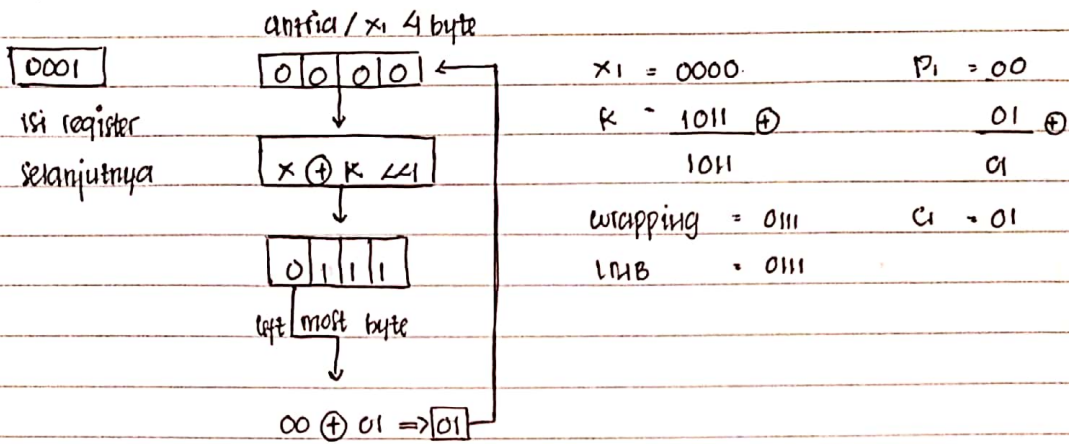 antria / x1 4 byte
0001
isi register
selanjutnya
0 0 0 0
x ⊕ K <<1
0 1 1 1
left most byte
00 ⊕ 01 => 01
x1 = 0000.
K = 1011 ⊕
1011
wrapping = 0111
LMB = 0111
P1 = 00
01 ⊕
C1
C1 = 01